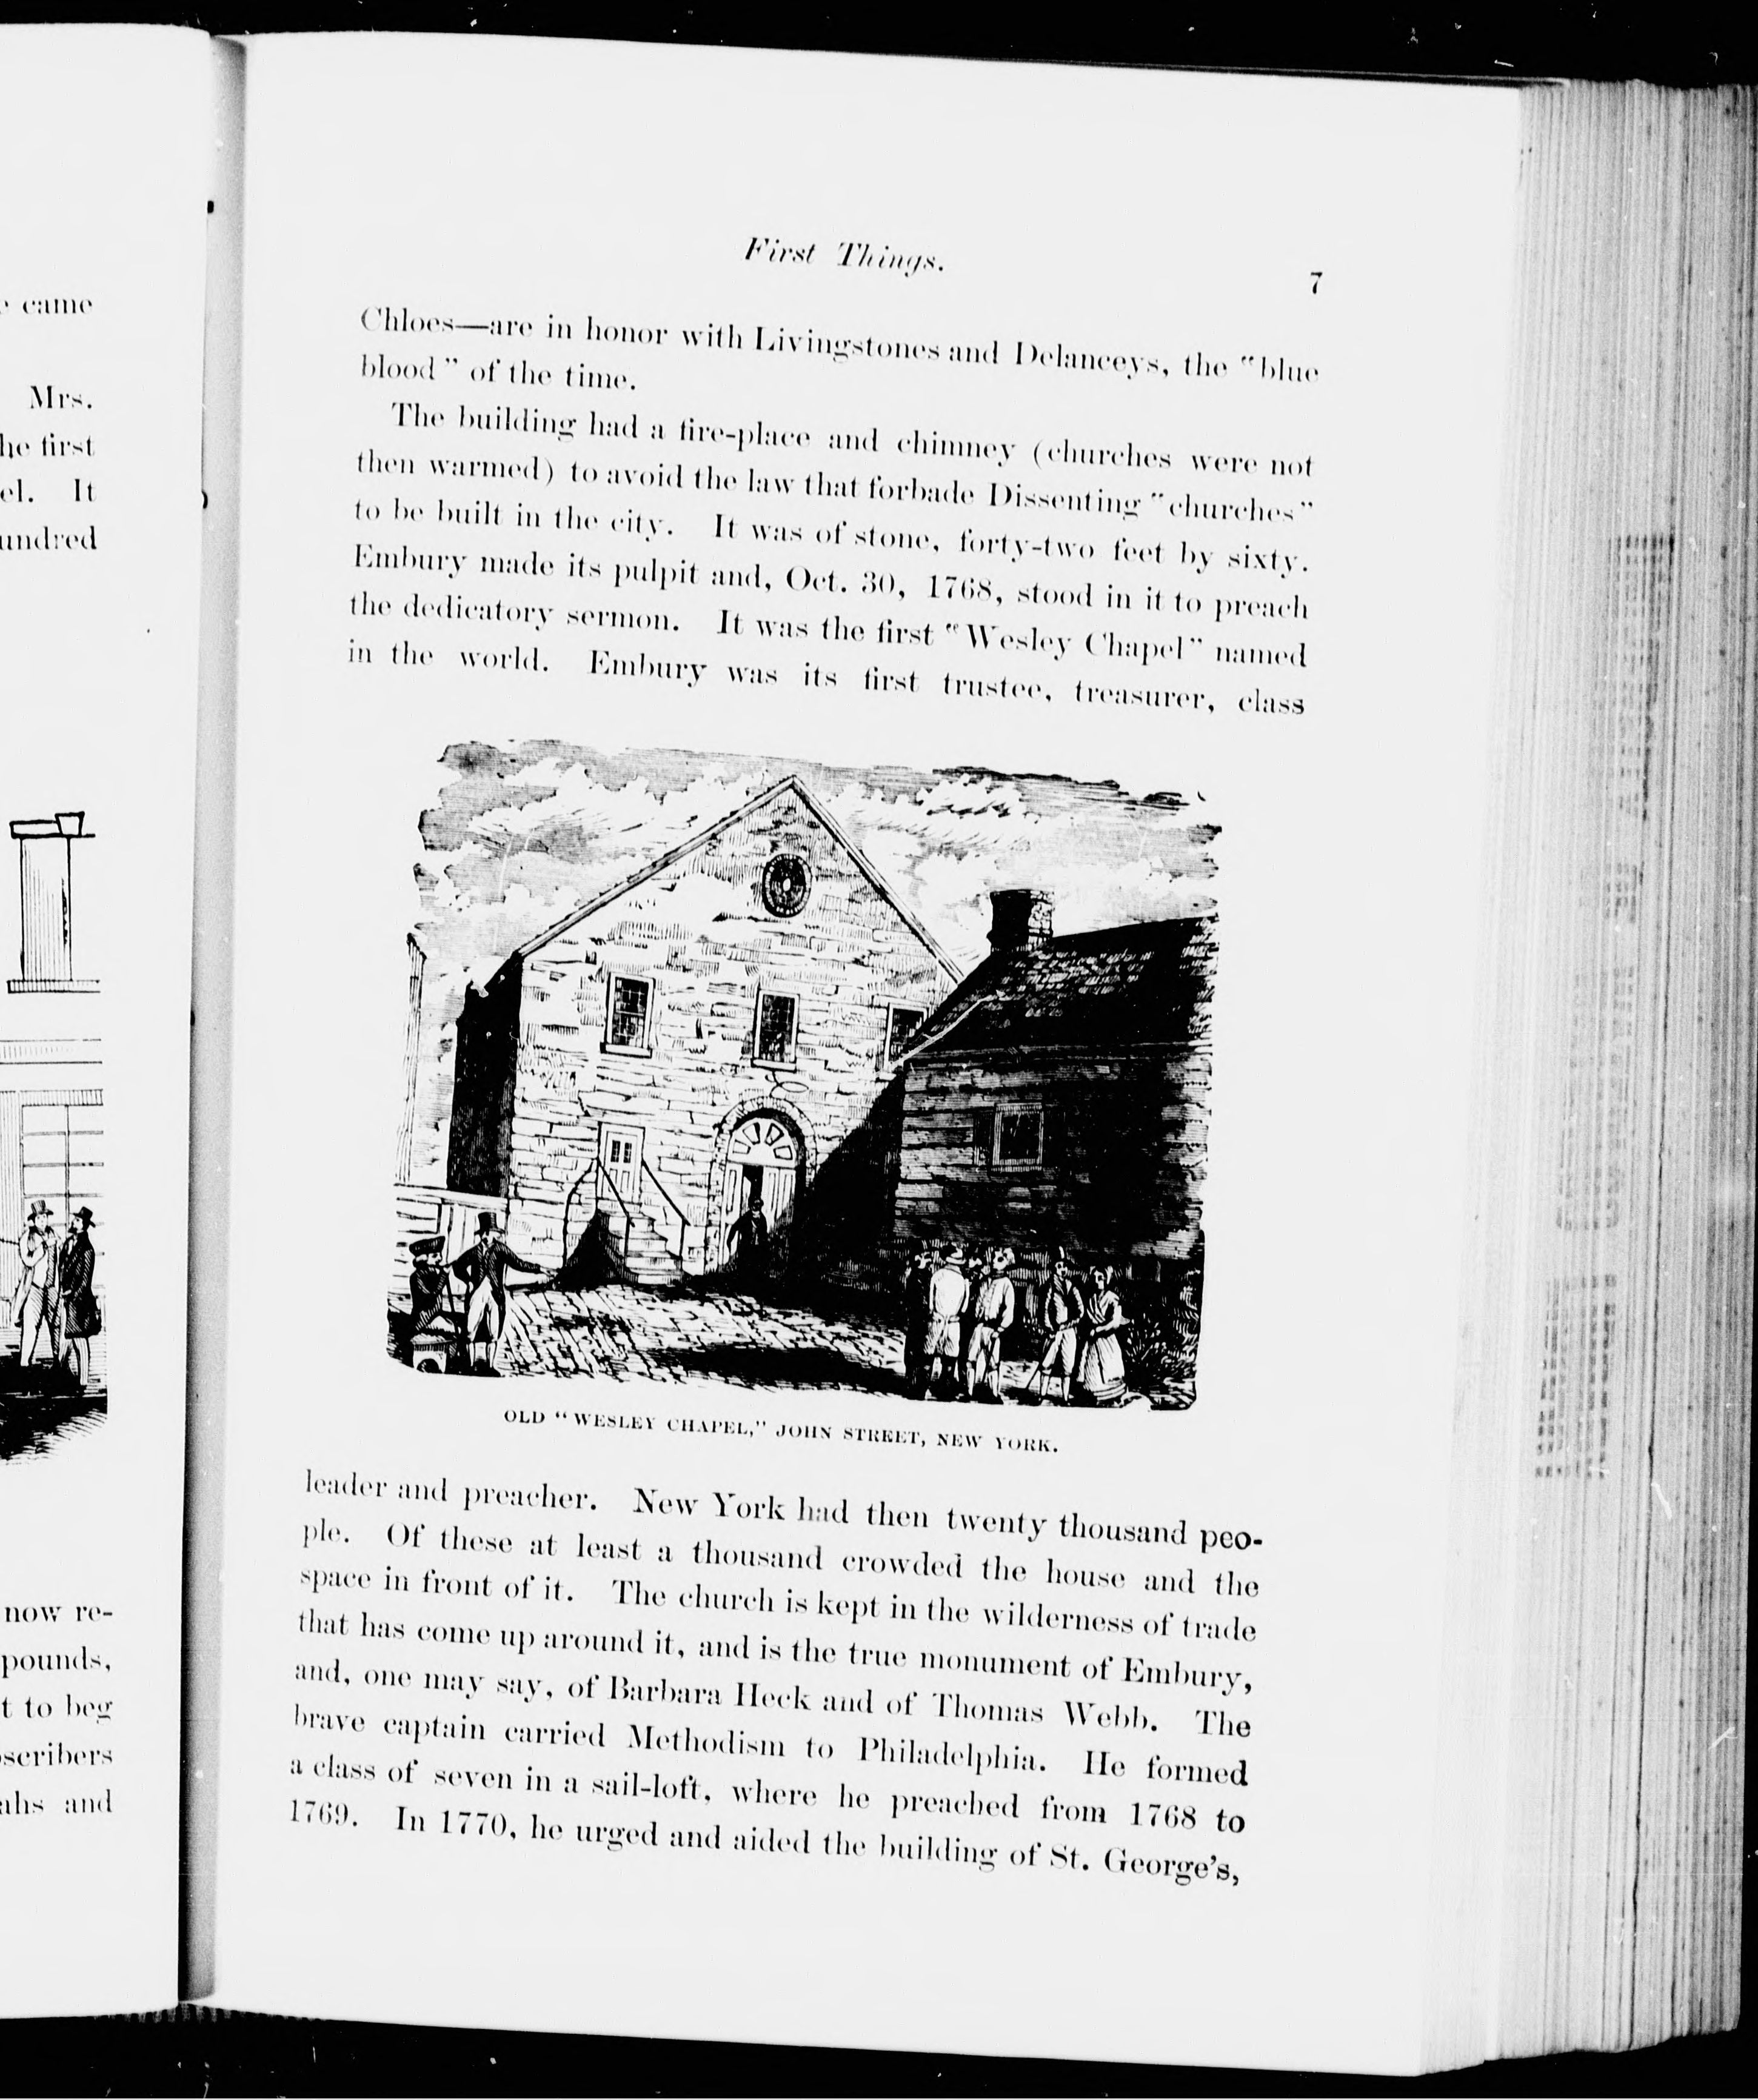 came
Mrs.
first
It
now re-
pounds,
to beg
and
First Things.
7
Chloes—are in honor with Livingstones and Delanceys, the "blue
blood" of the time.
The building had a fire-place and chimney (churches were not
then warmed) to avoid the law that forbade Dissenting "churches"
to be built in the city. It was of stone, forty-two feet by sixty.
Embury made its pulpit and, Oct. 30, 1768, stood in it to preach
the dedicatory sermon. It was the first "Wesley Chapel" named
in the world. Embury was its first trustee, treasurer, class
OLD "WESLEY CHAPEL," JOHN STREET, NEW YORK.
leader and preacher. New York had then twenty thousand peo-
ple. Of these at least a thousand crowded the house and the
space in front of it. The church is kept in the wilderness of trade
that has come up around it, and is the true monument of Embury,
and, one may say, of Barbara Heck and of Thomas Webb. The
brave captain carried Methodism to Philadelphia. He formed
a class of seven in a sail-loft, where he preached from 1768 to
1769. In 1770, he urged and aided the building of St. George's,